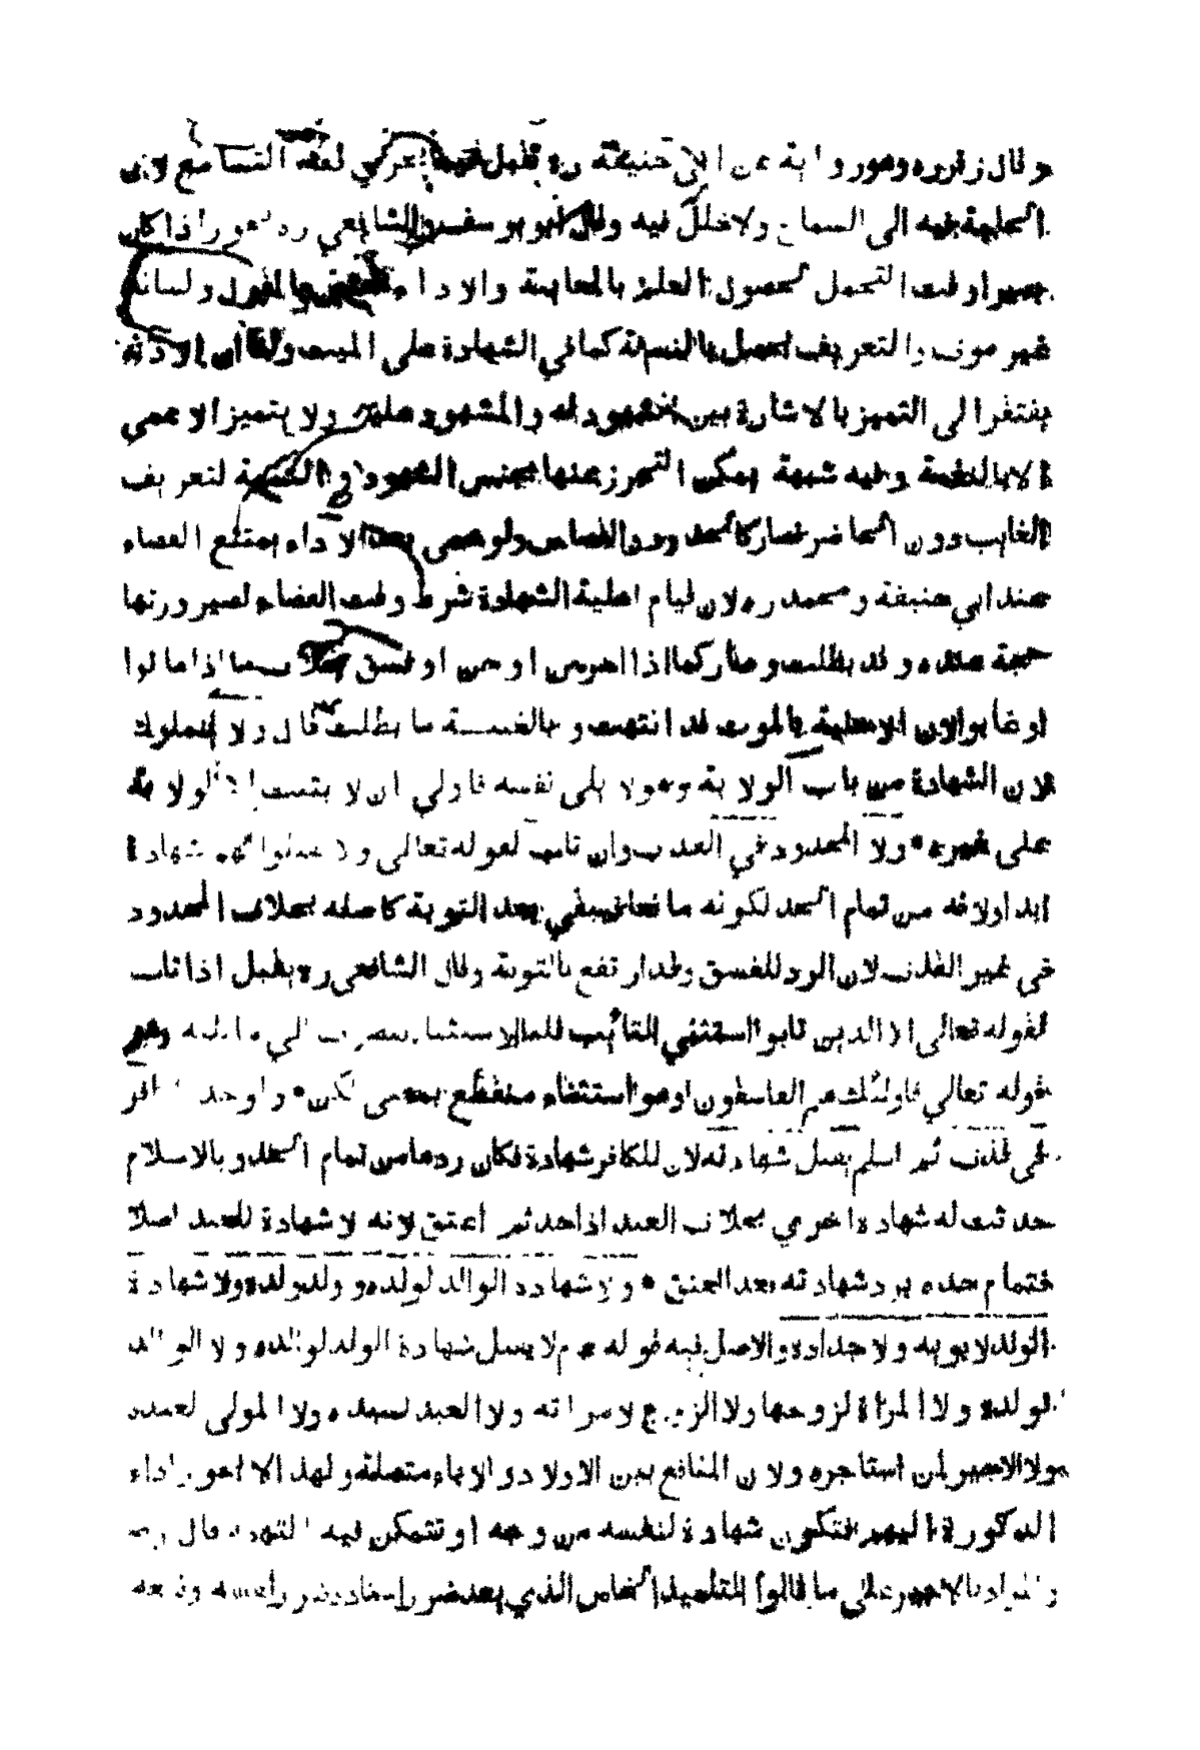 وقال زفر ره وهو رواية عن ابي حنيفة ره تقبل فيما يجري فيه التسامع لان
الحاجة فيه الى السماع ولا خلل فيه وقال ابو يوسف والشافعي رد يجوز اذا كان
بصيرا وقت التحمل لحصول العلم بالمعاينة والاداء يختص بالقول ولسانه
غير موف والتعريف يحصل بالنسبة كما في الشهادة على الميت ولنا ان الاداء
يفتقر الى التميز بالاشارة بين المشهود له والمشهود عليه ولا يتميز الاعمى
الا بالنغمة وفيه شبهة يمكن التحرز عنها بجنس الشهود والنسبة لتعريف
الغايب دون الحاضر فصار كالحدود والقصاص ولو عمى بعد الاداء يمتنع القضاء
عند ابي حنيفة ومحمد ره لان قيام اهلية الشهادة شرط وقت القضاء لصيرورتها
حجة عنده وقد بطلت وصار كما اذا خرس او جن او فسق بخلاف ما اذا ماتوا
او غابوا لان الاهلية بالموت قد انتهت وبالغيبة ما بطلت قال ولا المملوك
لان الشهادة من باب الولاية وهو لا يلى نفسه فاولي ان لا يثبت له الولاية
على غيره • ولا المحدود في القذف وان تاب لقوله تعالى ولا تقبلوا لهم شهادة
ابدا ولانه من تمام الحد لكونه مانعا فيبقي بعد التوبة كاصله بخلاف المحدود
في غير القذف لان الرد للفسق وقد ارتفع بالتوبة وقال الشافعي ره يقبل اذا تاب
لقوله تعالى الا الذين تابوا استثني التائب قلنا الاستثناء ينصرف الي ما يليه وهو
قوله تعالي فاولئك هم الفاسقون او هو استثناء منقطع بمعنى لكن • ولو حد الكافر
في قذف ثم اسلم يقبل شهادته لان للكافر شهادة فكان ردها من تمام الحد وبالاسلام
حدثت له شهادة اخري بخلاف العبد اذا حد ثم اعتق لانه لا شهادة للعبد اصلا
فتمام حده برد شهادته بعد العتق • ولا شهادة الوالد لولده وولد ولده ولا شهادة
الولد لابويه ولاجداده والاصل فيه قوله عم لا يقبل شهادة الولد لوالده ولا الوالد
لولده ولا المراة لزوجها ولا الزوج لامراته ولا العبد لسيده ولا المولى لعبده
ولا الاجير لمن استاجره ولان المنافع بين الاولاد والاباء متصلة ولهذا لا يجوز اداء
الذكورة اليهم فتكون شهادة لنفسه من وجه او تتمكن فيه التهمة قال ره
والمراد بالاجير على ما قالوا التلميذ الخاص الذي يعد ضرر استاذه ضرر نفسه ونفعه